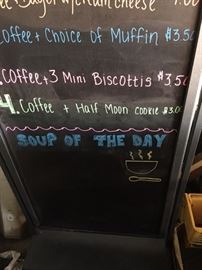 Coffee + Choice of Muffin $3.50
Coffee + 3 Mini Biscottis $3.50
4. Coffee + Half Moon Cookie $3.00
SOUP OF THE DAY